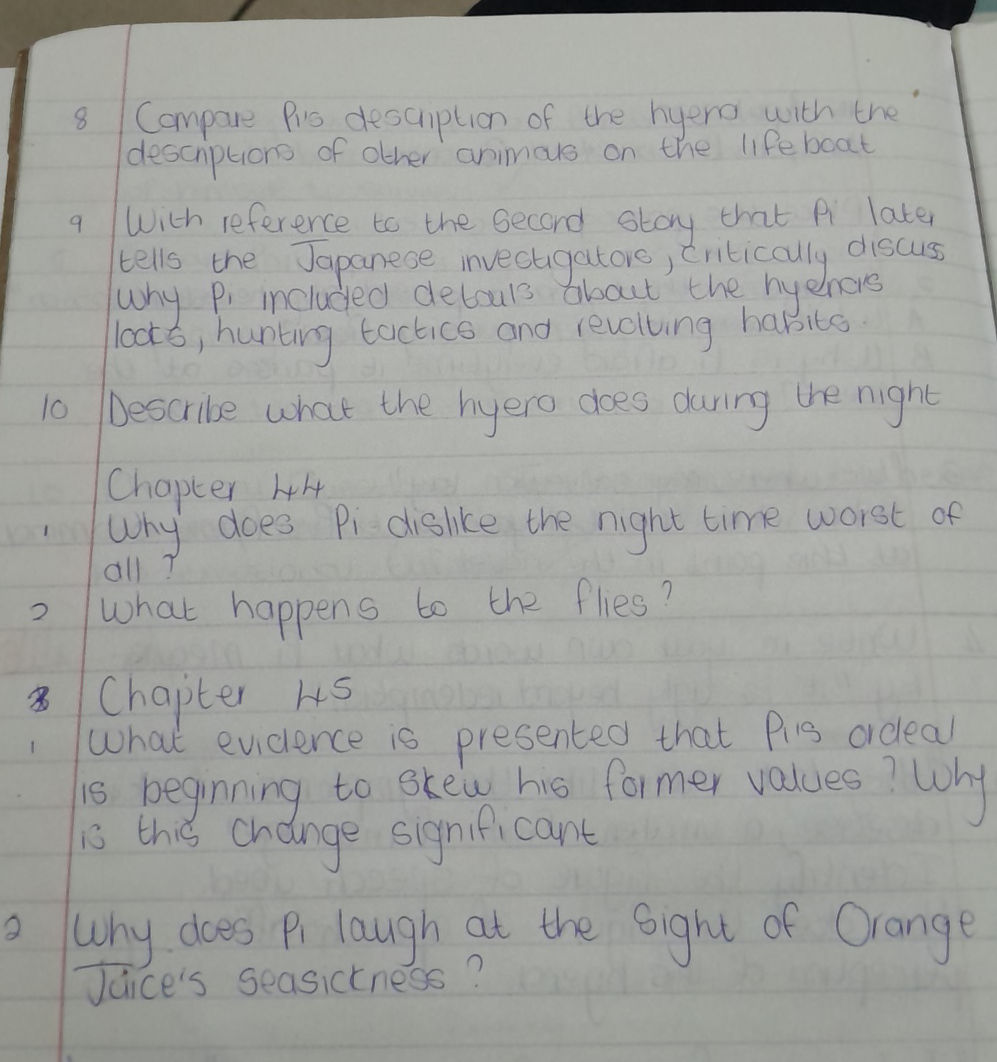 8 Compare Pi's description of the hyena with the
descriptions of other animals on the lifeboat
9 With reference to the Second Story that Pi later
tells the Japanese investigators, critically discuss
why Pi included details about the hyena's
looks, hunting tactics and revolting habits.
10 Describe what the hyena does during the night
Chapter 44
1 Why does Pi dislike the night time worst of
all?
2 What happens to the flies?
Chapter 45
1 What evidence is presented that Pi's ordeal
is beginning to skew his former values? Why
is this change significant
2 Why does Pi laugh at the Sight of Orange
Juice's seasickness?